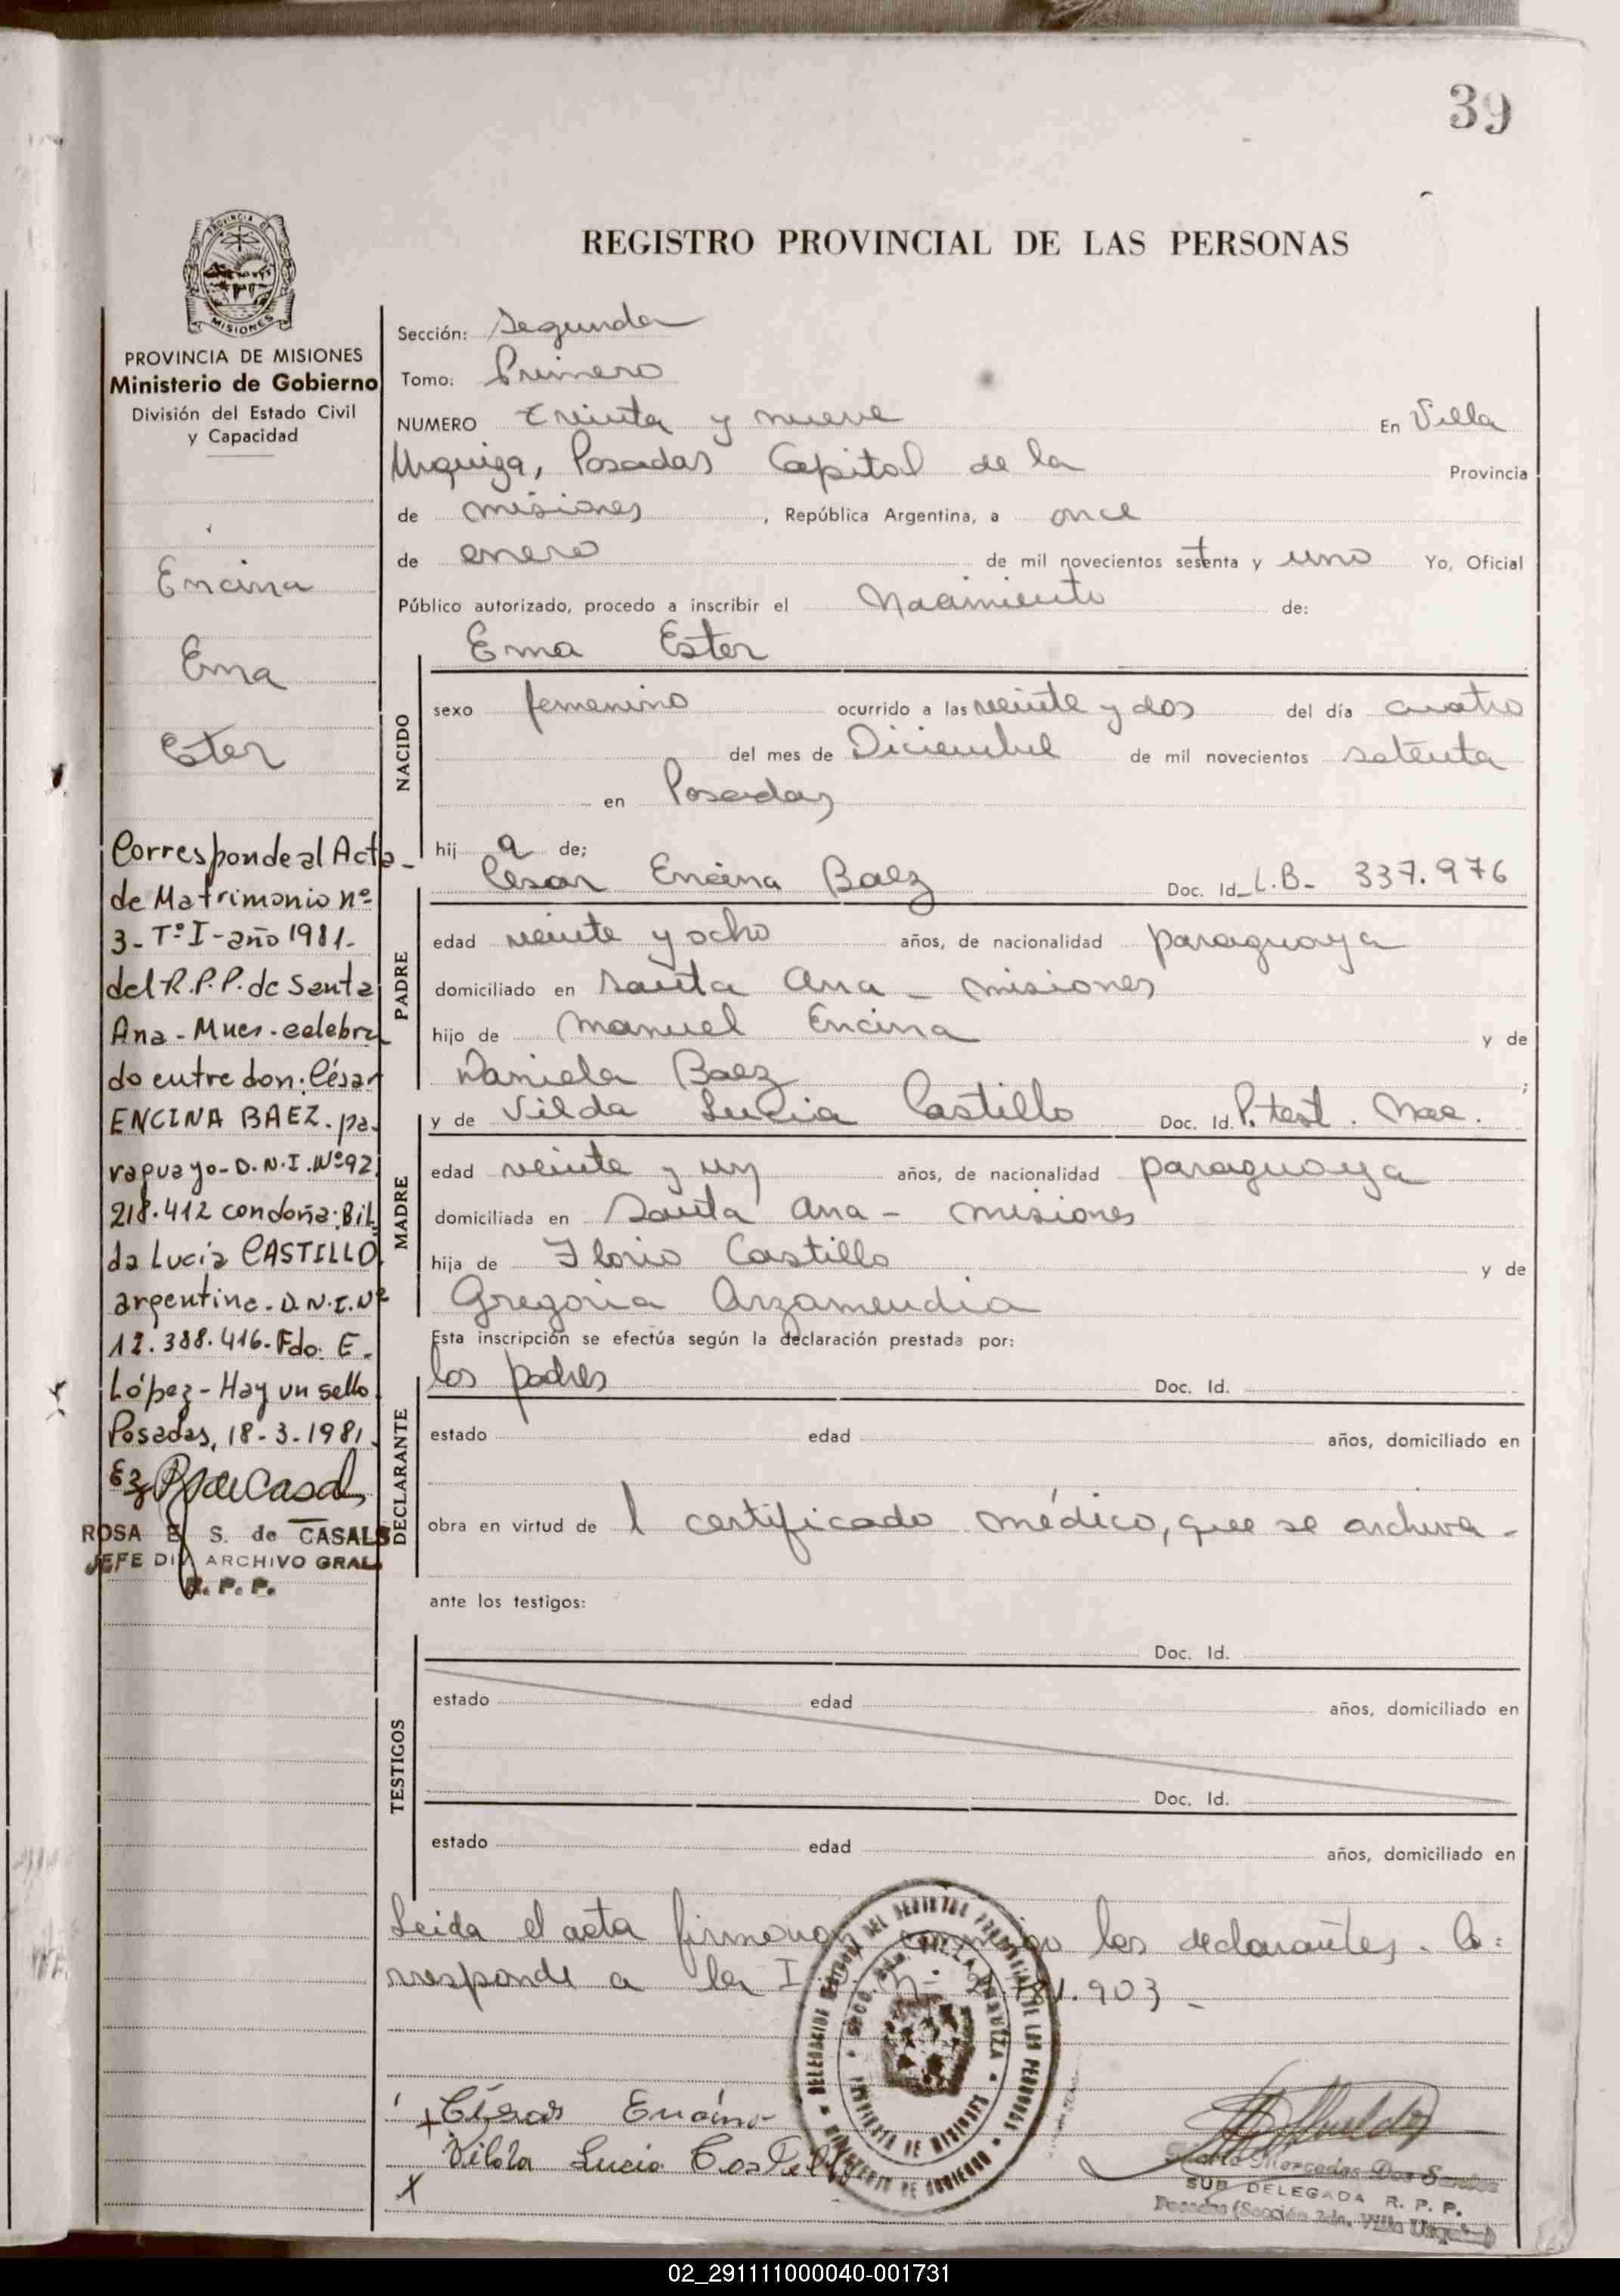 39
REGISTRO PROVINCIAL DE LAS PERSONAS
PROVINCIA DE MISIONES
Ministerio de Gobierno
División del Estado Civil
y Capacidad
Encina
Ema
Ester
Corresponde al Acta-
de Matrimonio nº
3- Tº I - año 1981-
del R.P.P. de Santa
Ana - Mnes - celebra
do entre don: César
ENCINA BAEZ - pa-
raguayo - D.N.I. Nº 92.
218.412 con doña: Bil
da Lucia CASTILLO
argentina - D.N.I. Nº
12.388.416 - Fdo: E.
López - Hay un sello
Posadas, 18-3-1981.
ROSA E. S. de CASALS
JEFE DIV ARCHIVO GRAL
R. P. P.
Sección: Segunda
Tomo: Primero
NUMERO treinta y nueve En Villa
Urquiza, Posadas Capital de la Provincia
de misiones, República Argentina, a once
de enero de mil novecientos setenta y uno Yo, Oficial
Público autorizado, procedo a inscribir el Nacimiento de:
Ema Ester
NACIDO
sexo femenino ocurrido a las veinte y dos del día cuatro
del mes de Diciembre de mil novecientos setenta
en Posadas
hij a de;
Cesar Encina Baez Doc. Id. L.B. 337.976
PADRE
edad veinte y ocho años, de nacionalidad paraguaya
domiciliado en Santa Ana - misiones
hijo de Manuel Encina y de
Daniela Baez;
y de Vilda Lucia Castillo Doc. Id. P. test. Nac.
MADRE
edad veinte y un años, de nacionalidad paraguaya
domiciliada en Santa Ana - misiones
hija de Florio Castillo y de
Gregoria Arzamendia
Esta inscripción se efectúa según la declaración prestada por:
los padres Doc. Id.
DECLARANTE
estado edad años, domiciliado en
obra en virtud de l certificado médico, que se archiva -
ante los testigos:
Doc. Id.
TESTIGOS
estado edad años, domiciliado en
Doc. Id.
estado edad años, domiciliado en
Leida el acta firmaron conmigo los declarantes. Co=
rresponde a la I 903 -
César Encina
Vilda Lucia Castillo
DELEGACION DEL REGISTRO PROVINCIAL DE LAS PERSONAS
PROVINCIA DE MISIONES
MINISTERIO DE GOBIERNO
Mercedes Dos Santos
SUB DELEGADA R. P. P.
Posadas (Sección 2da. Villa Urquiza)
02_291111000040-001731